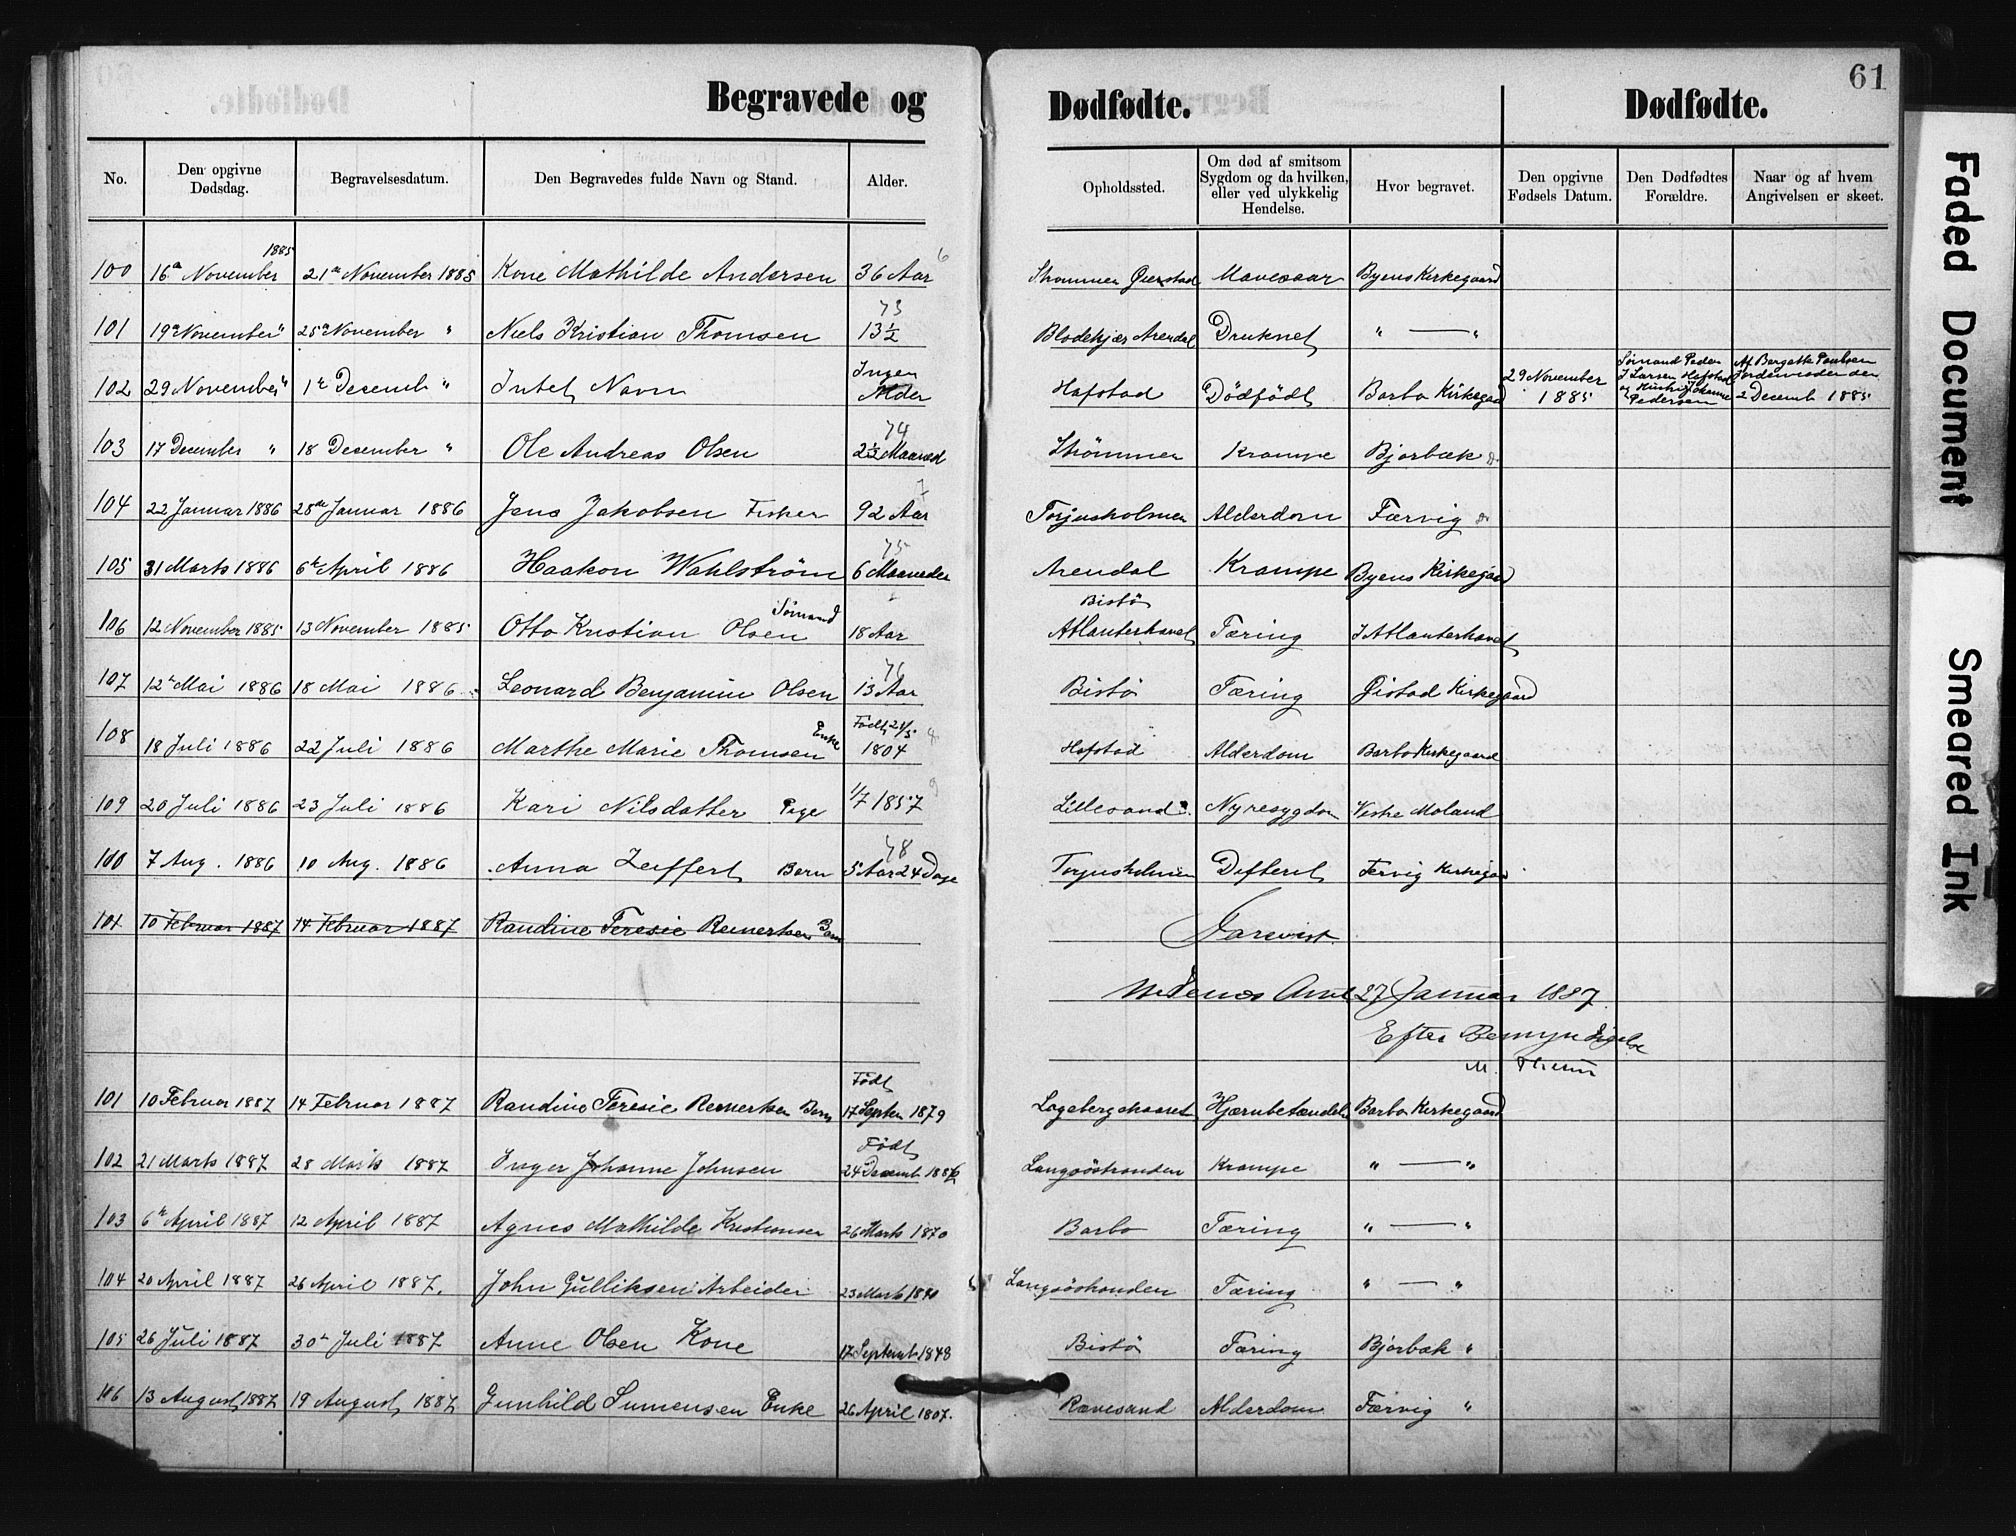 Begravede og Dødfødte. Dødfødte. 61
No. Den opgivne Dødsdag. Begravelsesdatum. Den Begravedes fulde Navn og Stand. Alder. Opholdssted. Om død af smitsom Sygdom og da hvilken, eller ved ulykkelig Hendelse. Hvor begravet. Den opgivne Fødsels Datum. Den Dødfødtes Forældre. Naar og af hvem Angivelsen er skeet.
1885 6
100 16de November 21de November 1885 Kone Mathilde Andersen 36 Aar Strømmen Øiestad Mavesaar Byens Kirkegaard
73
101 19de November " 25de November " Niels Kristian Thomsen 13½ Blodekjær Arendal Druknet " — "
102 29 November " 1te Decemb " Intet Navn Ingen Alder Hafstad Dödfödt Barbo Kirkegaard 29 November 1885 Sømand Peder J Larsen Hafstad og Hustru Johanne Pedersen Af Bergette Paulsen Jordemoder den 2 Decemb 1885
74
103 17 December " 18 Desember " Ole Andreas Olsen 2½ Maaned Strømmen Krampe Bjorbæk
7
104 22 Januar 1886 28de Januar 1886 Jens Jakobsen Fisker 92 Aar Torjusholmen Alderdom Færvig
75
105 31 Marts 1886 6te April 1886 Haakon Wahlstrøm 6 Maaneder Arendal Krampe Byens Kirkegaard
106 12 November 1885 13 November 1885 Otto Kristian Olsen Sömand 18 Aar Bistö Atlanterhavet Tæring I Atlanterhavet
76
107 12te Mai 1886 18 Mai 1886 Leonard Benjamin Olsen 13 Aar Bistö Tæring Øistad Kirkegaard
108 18 Juli 1886 22 Juli 1886 Marthe Marie Thomsen Enke Födt 21/5 1804 8 Hafstad Alderdom Barbo Kirkegaard
109 20 Juli 1886 23 Juli 1886 Kari Nilsdatter Pige 1/7 1857 9 Lillesand Nyresygdom Vestre Moland
78
100 7 Aug. 1886 10 Aug. 1886 Anna Zeiffert Barn 5 Aar 24 Dage Torjusholmen Difterit Fervig Kirkegaard
101 10 Februar 1887 14 Februar 1887 Randine Teresie Reinertsen Barn
Forevist.
Nedenes Amt 27 Januar 1887.
Efter Bemyndigelse
101 10 Februar 1887 14 Februar 1887 Randine Teresie Reinertsen Barn Födt 17 Septem 1879 Hjærnebetændelse Barbo Kirkegaard
102 21 Marts 1887 28 Marts 1887 Inger Johanne Johnsen Födt 24 Decemb 1886 Langsöstranden Krampe " — "
103 6te April 1887 12 April 1887 Agnes Mathilde Kristiansen 26 Marts 1870 Barbo Tæring " — "
104 20 April 1887 26 April 1887. John Gulliksen Arbeider 23 Marts Langsöstranden Tæring " — "
105 26 Juli 1887 30te Juli 1887 Anne Olsen Kone 17 Septemb 1848 Bistö Tæring Bjorbæk "
106 13 August 1887 19 August 1887 Gunhild Enke 26 April 1807. Rævesand Alderdom Færvig "
Faded Document
Smeared Ink